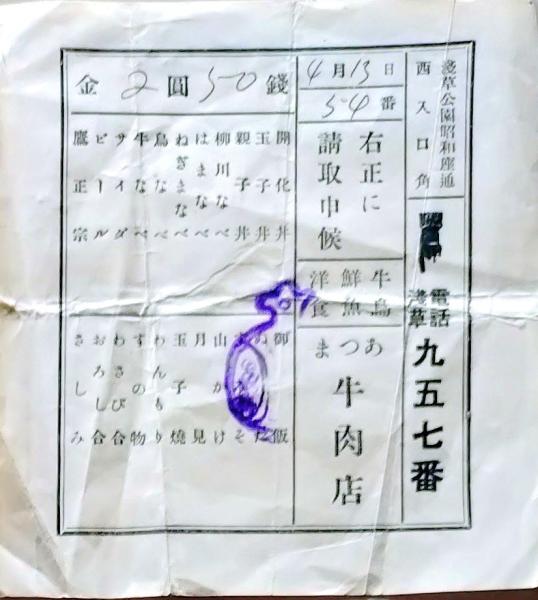 淺草公園昭和座通
西入口角
電話
淺草
九五七番
4月13日
54番
右正に
請取申候
牛鳥
鮮魚
洋食
あつま
牛肉店
金2圓50錢
開化丼
玉子丼
親子丼
柳川なべ
はまなべ
ねぎまなべ
鳥なべ
牛なべ
サイダ
ビール
鷹正宗
御飯
ぬた
山かけ
月見
玉子燒
わんもり
すの物
わさび合
おろし合
さしみ